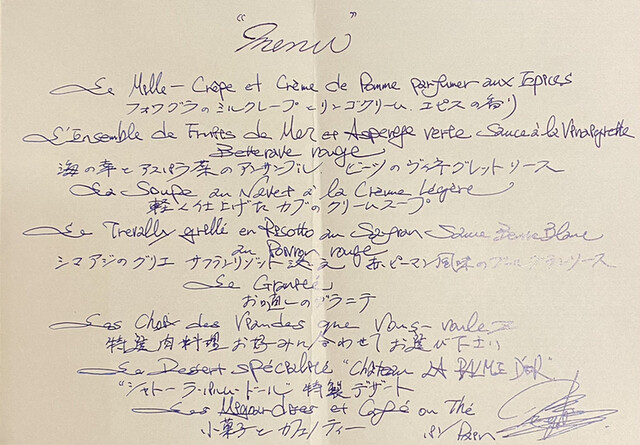 "Menu"
Le Mille-Crêpe et Crème de Pomme parfumer aux Epices
フォワグラのミルクレープとリンゴクリーム、エピスの香り
L'Ensemble de Fruits de Mer et Asperege verte Sauce à la Vinaigrette
Betterave rouge
海の幸とアスパラ菜のアンサンブル ビーツのヴィネグレットソース
La Soupe au Navet à la Crème Légère
軽く仕上げたカブのクリームスープ
Le Trevally grillé en Risotto au Safran Sauce Beurre Blanc
au Poivron rouge
シマアジのグリエ サフランリゾット 赤ピーマン風味のブールブランソース
Le Granité
お口直しのグラニテ
Les Choix des Viandes que Vous voulez
特選肉料理 お好みにあわせてお選び下さい
Le Dessert Spécialité "Château LA PALME D'OR"
"シャトー ラ・パルム・ドール" 特製デザート
Les Mignardises et Café ou Thé
小菓子とカフェ/ティー